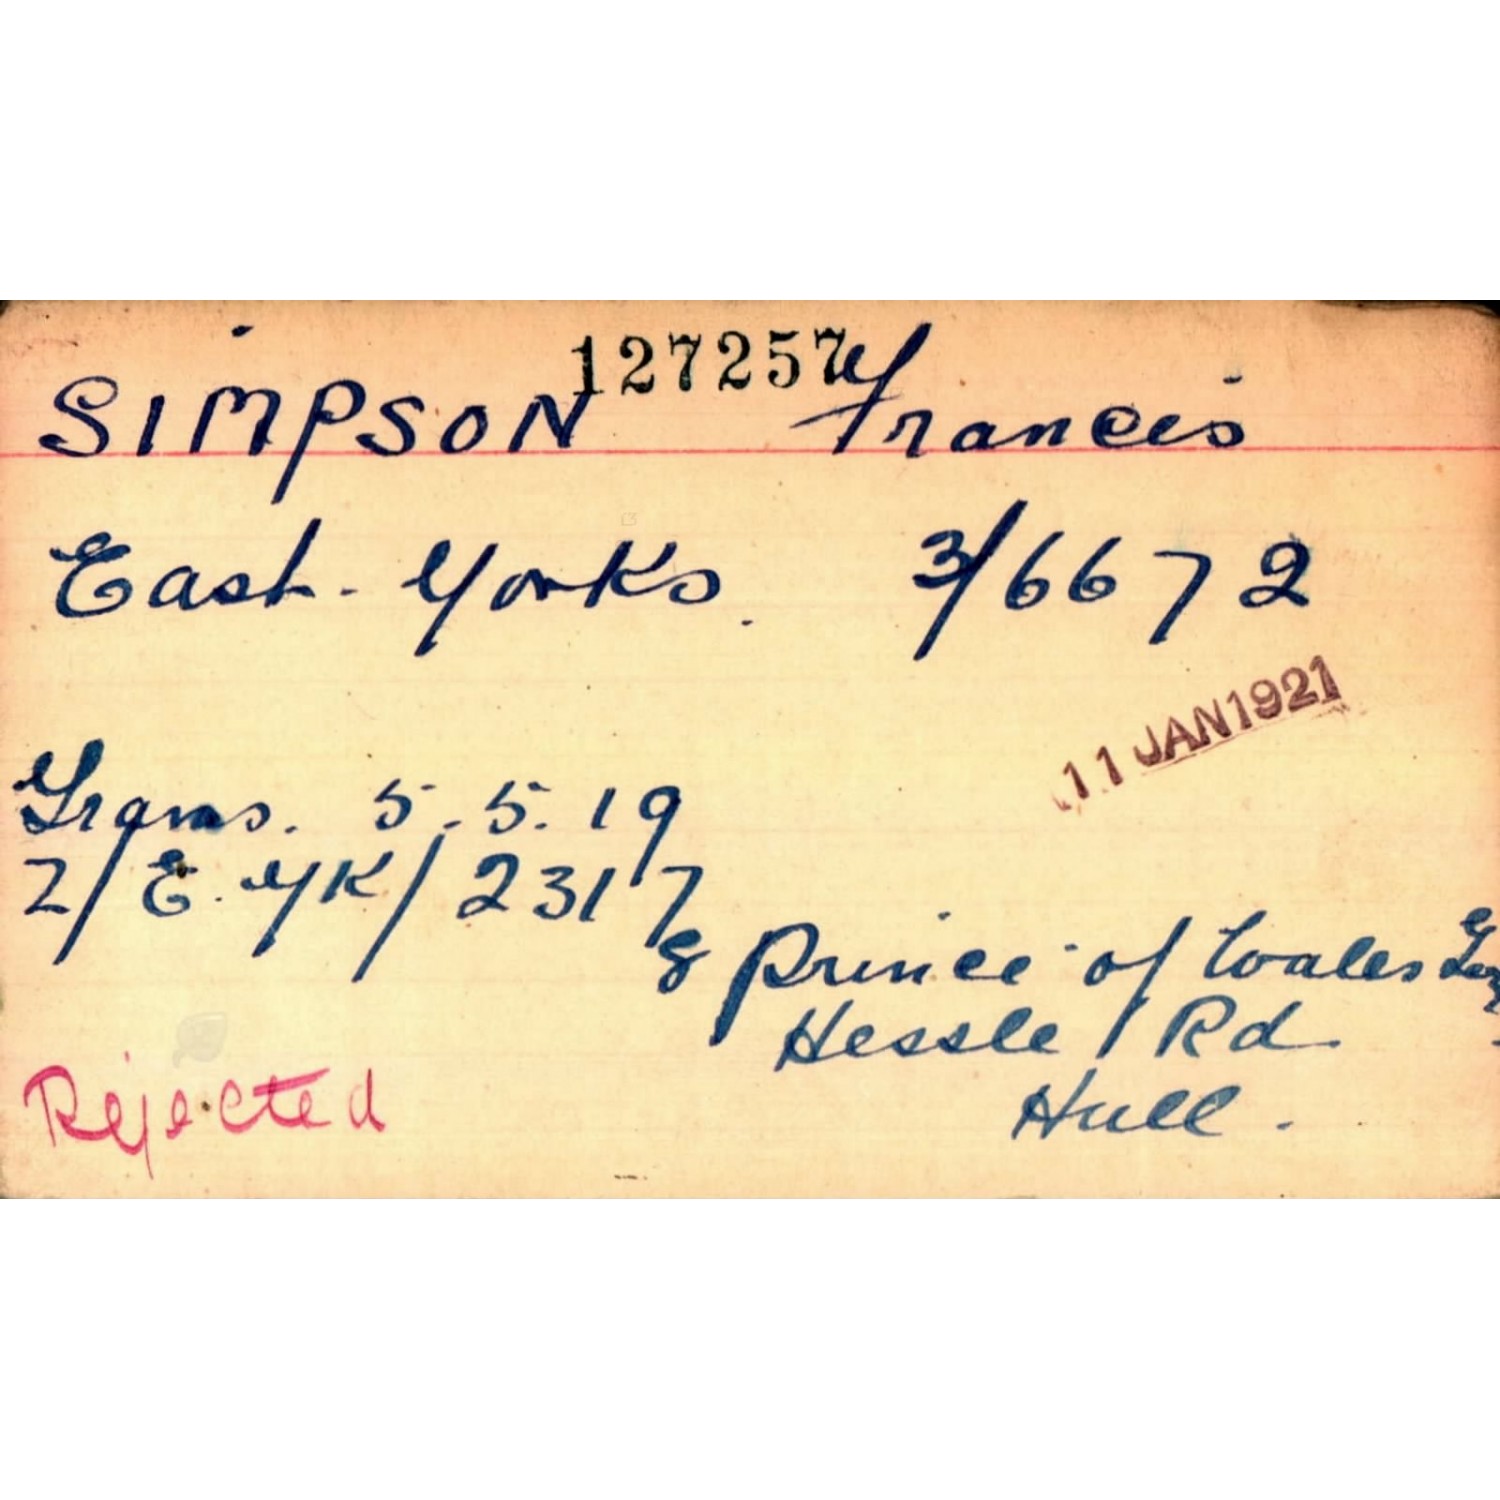 127257
SIMPSON Francis
East. Yorks. 3/6672
11 JAN 1921
Trans. 5.5.19
Z/E.YK/2317
8 Prince of Wales
Hessle Rd.
Hull.
Rejected